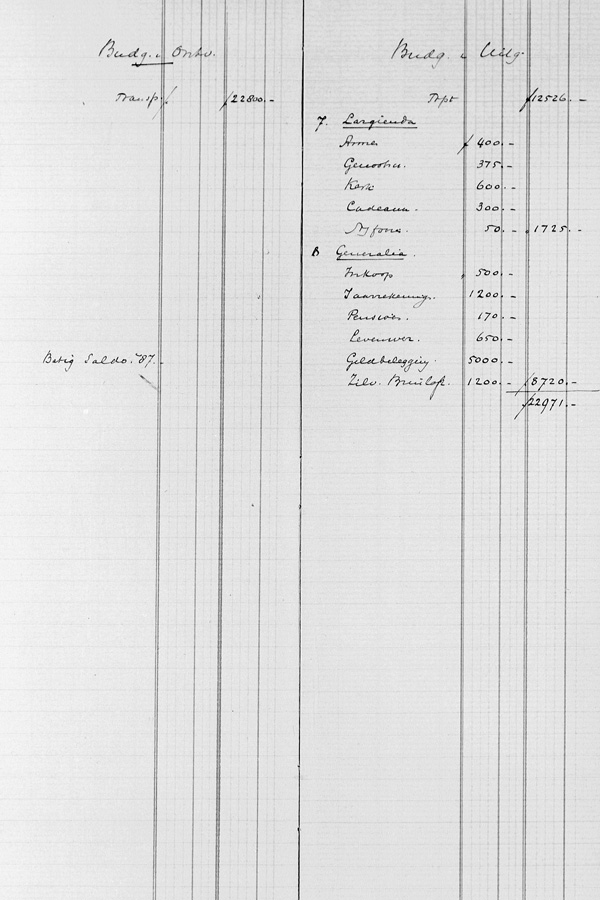 Budg. v. Ontv.
Transp. f 22800.-
Batig Saldo. '87.-
Budg. v. Uitg.
Trpt f 12526.-
7. Largienda
Armen f 400.-
Genooten. 375.-
Kerk 600.-
Cadeaux. 300.-
50.- 1725.-
8 Generalia.
Inkoop 500.-
Jaarrekening. 1200.-
Pensioen. 170.-
Levensver. 650.-
Geldbelegging. 5000.-
Zilv. Bruiloft. 1200.- f 8720.-
f 22971.-